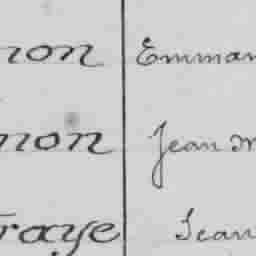 non Emman
non Jean M
raye Jean